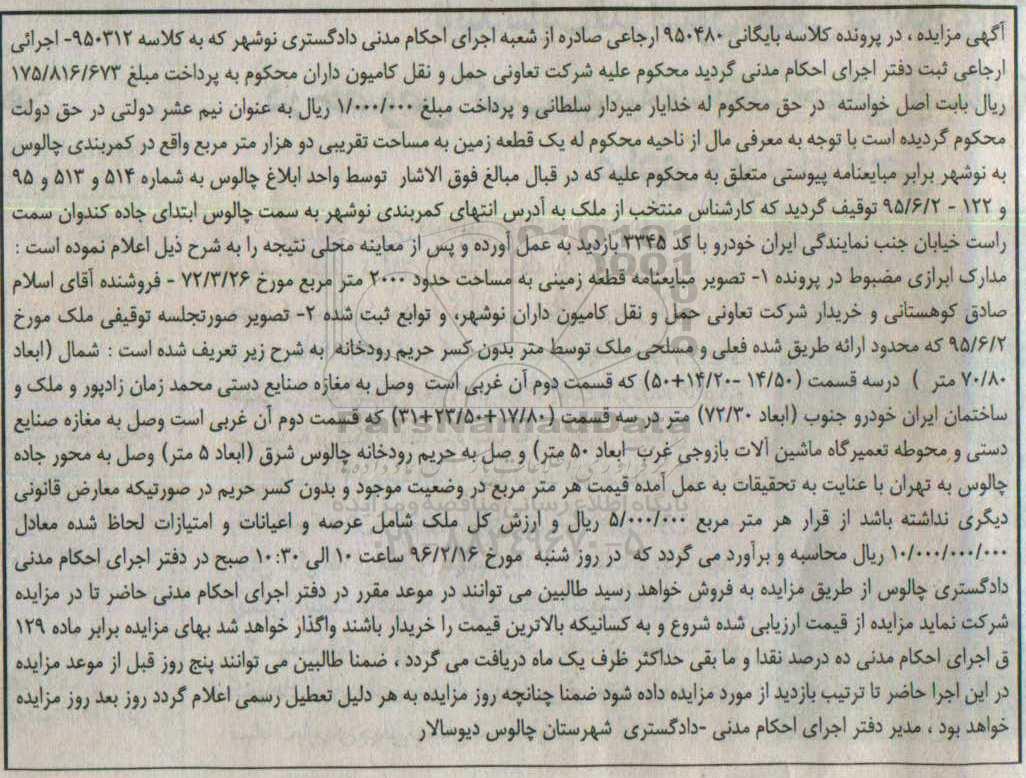 آگهی مزایده ، در پرونده کلاسه بایگانی ۹۵۰۴۸۰ ارجاعی صادره از شعبه اجرای احکام مدنی دادگستری نوشهر که به کلاسه ۹۵۰۳۱۲- اجرائی
ارجاعی ثبت دفتر اجرای احکام مدنی گردید محکوم علیه شرکت تعاونی حمل و نقل کامیون داران محکوم به پرداخت مبلغ ۱۷۵/۸۱۶/۶۷۳
ریال بابت اصل خواسته در حق محکوم له خدایار میردار سلطانی و پرداخت مبلغ ۱/۰۰۰/۰۰۰ ریال به عنوان نیم عشر دولتی در حق دولت
محکوم گردیده است با توجه به معرفی مال از ناحیه محکوم له یک قطعه زمین به مساحت تقریبی دو هزار متر مربع واقع در کمربندی چالوس
به نوشهر برابر مبایعنامه پیوستی متعلق به محکوم علیه که در قبال مبالغ فوق الاشار توسط واحد ابلاغ چالوس به شماره ۵۱۴ و ۵۱۳ و ۹۵
و ۱۲۲ - ۹۵/۶/۲ توقیف گردید که کارشناس منتخب از ملک به آدرس انتهای کمربندی نوشهر به سمت چالوس ابتدای جاده کندوان سمت
راست خیابان جنب نمایندگی ایران خودرو با کد ۳۳۴۵ بازدید به عمل آورده و پس از معاینه محلی نتیجه را به شرح ذیل اعلام نموده است :
مدارک ابرازی مضبوط در پرونده ۱- تصویر مبایعنامه قطعه زمینی به مساحت حدود ۲۰۰۰ متر مربع مورخ ۷۲/۳/۲۶ - فروشنده آقای اسلام
صادق کوهستانی و خریدار شرکت تعاونی حمل و نقل کامیون داران نوشهر، و توابع ثبت شده ۲- تصویر صورتجلسه توقیفی ملک مورخ
۹۵/۶/۲ که محدود ارائه طریق شده فعلی و مسلحی ملک توسط متر بدون کسر حریم رودخانه به شرح زیر تعریف شده است : شمال (ابعاد
۷۰/۸۰ متر ) درسه قسمت (۱۴/۵۰ -۱۴/۲۰+۵۰) که قسمت دوم آن غربی است وصل به مغازه صنایع دستی محمد زمان زادپور و ملک و
ساختمان ایران خودرو جنوب (ابعاد ۷۲/۳۰) متر در سه قسمت (۱۷/۸۰+۲۳/۵۰+۳۱) که قسمت دوم آن غربی است وصل به مغازه صنایع
دستی و محوطه تعمیرگاه ماشین آلات بازوجی غرب ابعاد ۵۰ متر) و صل به حریم رودخانه چالوس شرق (ابعاد ۵ متر) وصل به محور جاده
چالوس به تهران با عنایت به تحقیقات به عمل آمده قیمت هر متر مربع در وضعیت موجود و بدون کسر حریم در صورتیکه معارض قانونی
دیگری نداشته باشد از قرار هر متر مربع ۵/۰۰۰/۰۰۰ ریال و ارزش کل ملک شامل عرصه و اعیانات و امتیازات لحاظ شده معادل
۱۰/۰۰۰/۰۰۰/۰۰۰ ریال محاسبه و برآورد می گردد که در روز شنبه مورخ ۹۶/۲/۱۶ ساعت ۱۰ الی ۱۰:۳۰ صبح در دفتر اجرای احکام مدنی
دادگستری چالوس از طریق مزایده به فروش خواهد رسید طالبین می توانند در موعد مقرر در دفتر اجرای احکام مدنی حاضر تا در مزایده
شرکت نماید مزایده از قیمت ارزیابی شده شروع و به کسانیکه بالاترین قیمت را خریدار باشند واگذار خواهد شد بهای مزایده برابر ماده ۱۲۹
ق اجرای احکام مدنی ده درصد نقدا و ما بقی حداکثر ظرف یک ماه دریافت می گردد ، ضمنا طالبین می توانند پنج روز قبل از موعد مزایده
در این اجرا حاضر تا ترتیب بازدید از مورد مزایده داده شود ضمنا چنانچه روز مزایده به هر دلیل تعطیل رسمی اعلام گردد روز بعد روز مزایده
خواهد بود ، مدیر دفتر اجرای احکام مدنی -دادگستری شهرستان چالوس دیوسالار
ParsNamadData
پایگاه اطلاع رسانی مناقصه و مزایده